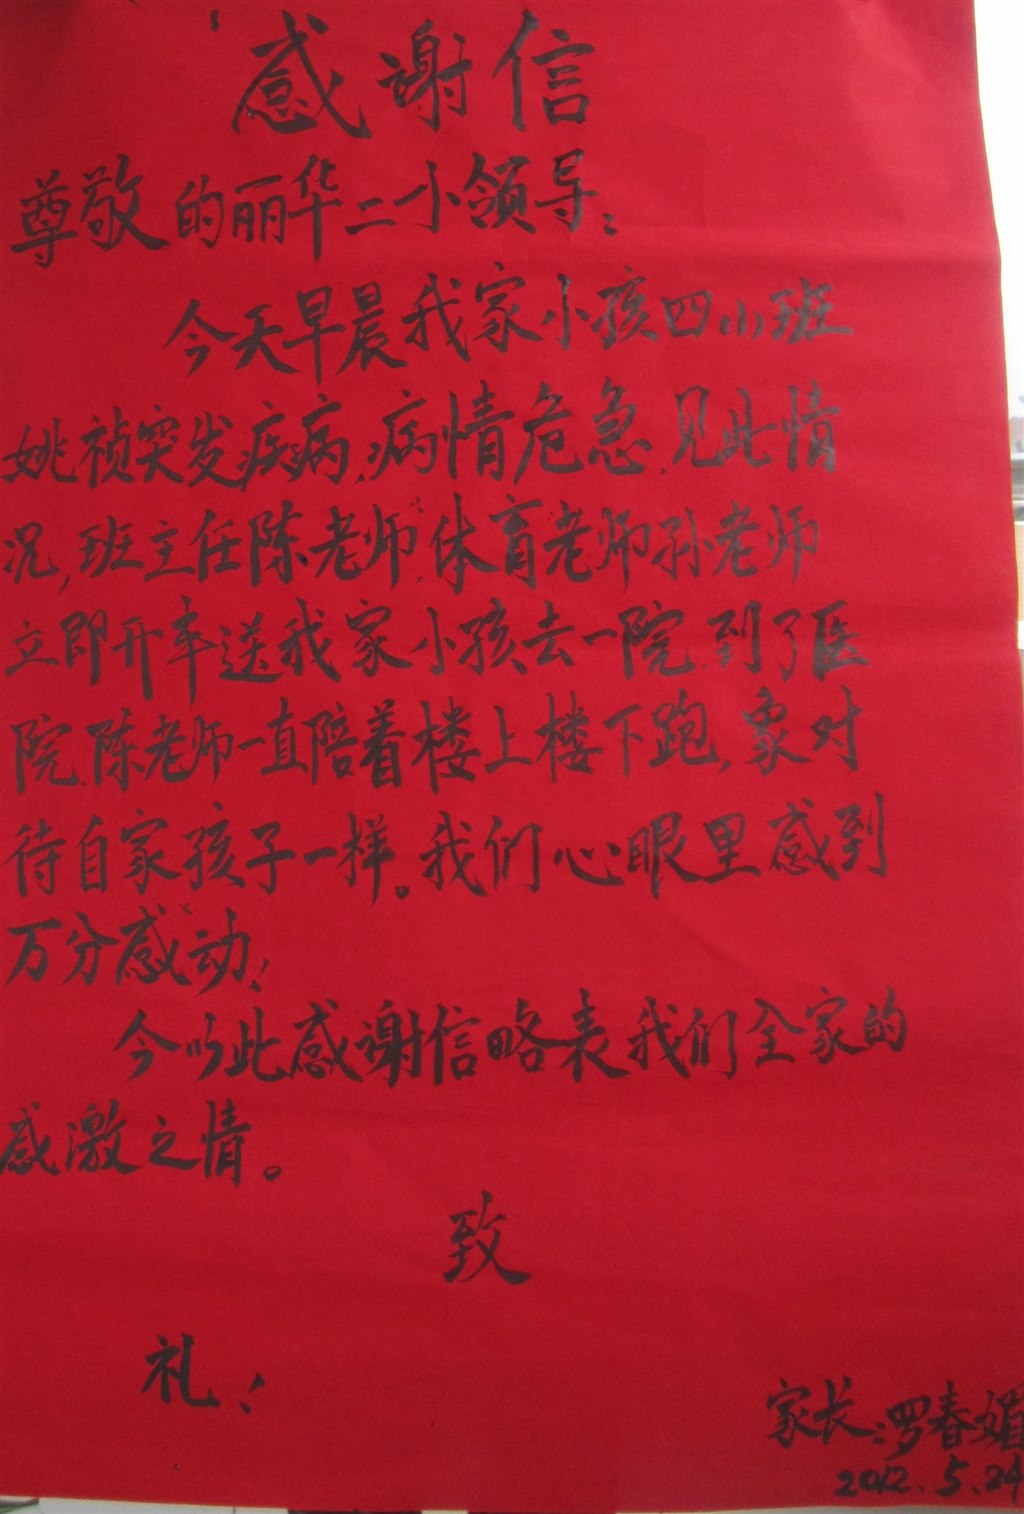 感谢信
尊敬的丽华二小领导:
今天早晨我家小孩四(1)班
姚祯突发疾病,病情危急,见此情
况,班主任陈老师,体育老师孙老师
立即开车送我家小孩去一院,到了医
院,陈老师一直陪着楼上楼下跑,象对
待自家孩子一样。我们心眼里感到
万分感动!
今以此感谢信略表我们全家的
感激之情。
致
礼!
家长:罗春媚
2012.5.24